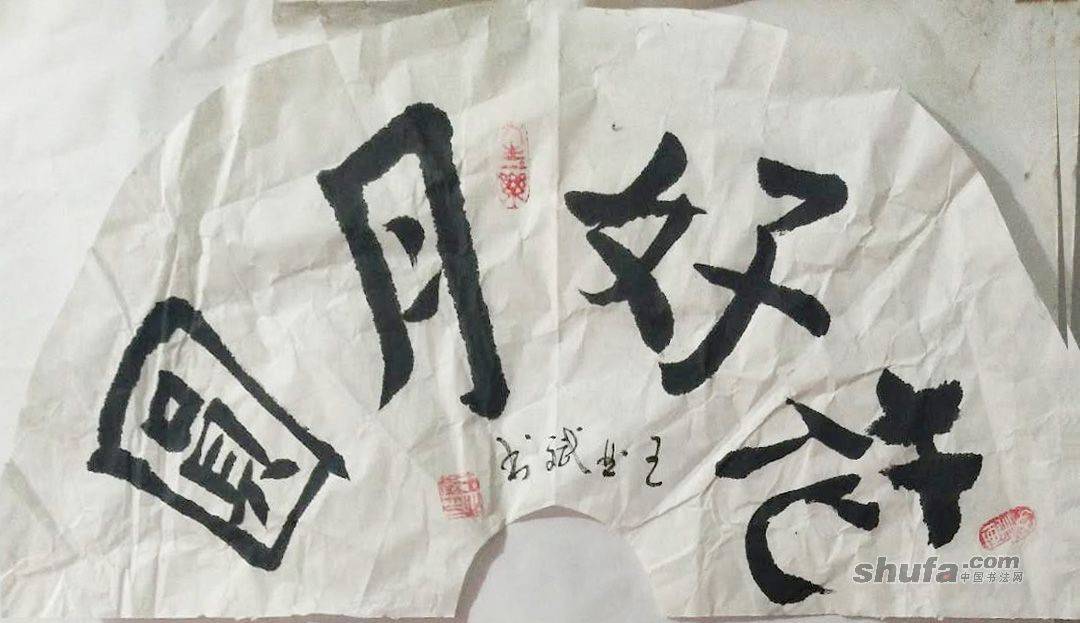 花好月圆
王业斌书
shufa.com
中国书法网